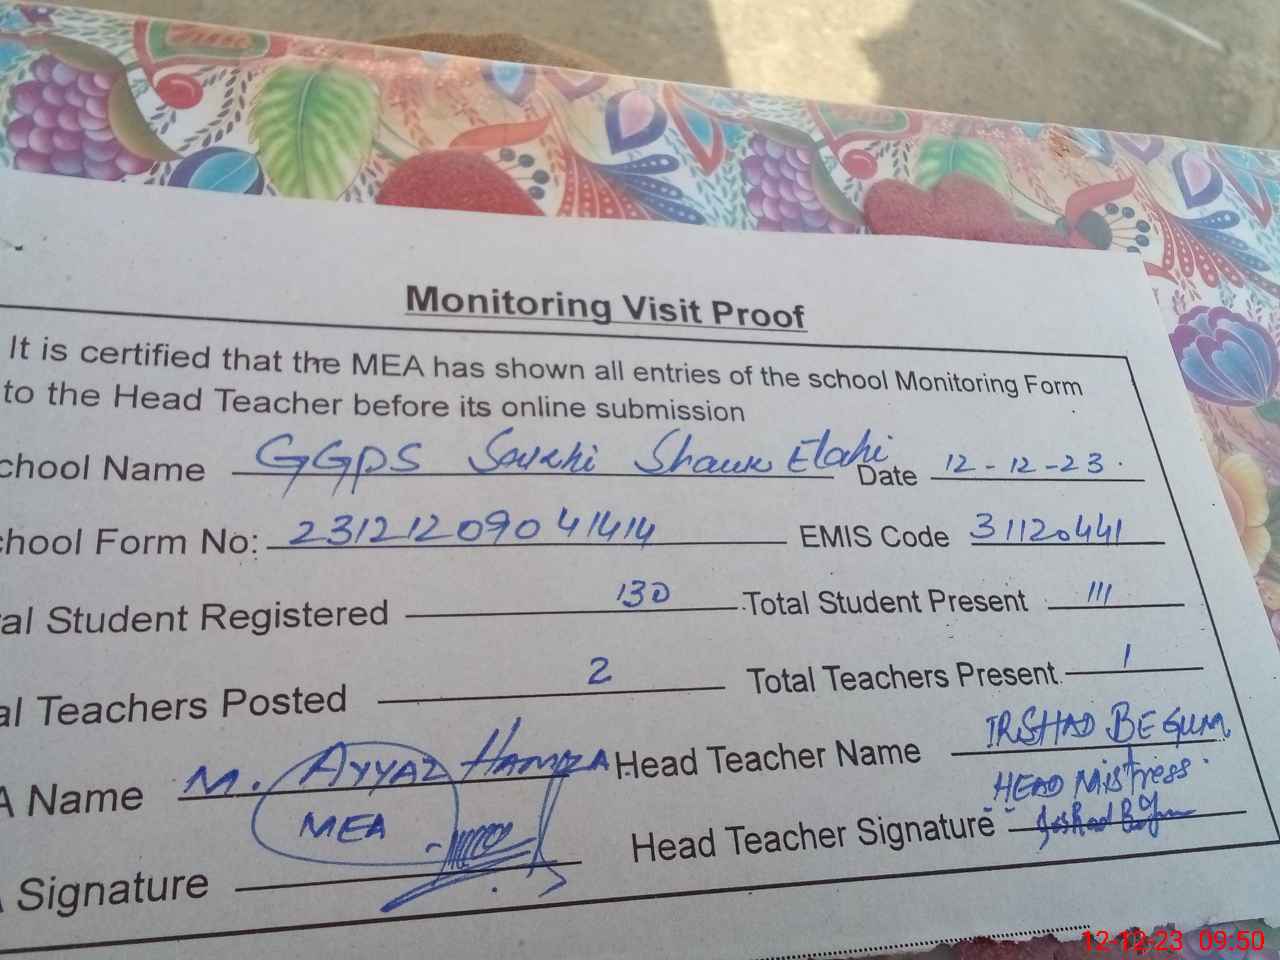 Monitoring Visit Proof
It is certified that the MEA has shown all entries of the school Monitoring Form
to the Head Teacher before its online submission
chool Name GGPS Shauk Elahi Date 12-12-23.
chool Form No: 23121209041414 EMIS Code 31120441
al Student Registered 130 Total Student Present 111
al Teachers Posted 2 Total Teachers Present 1
A Name M. AYYAZ HAMZA Head Teacher Name IRSHAD BEGUM
MEA HEAD Mistress.
Signature Head Teacher Signature Irshad Begum
12-12-23 09:50